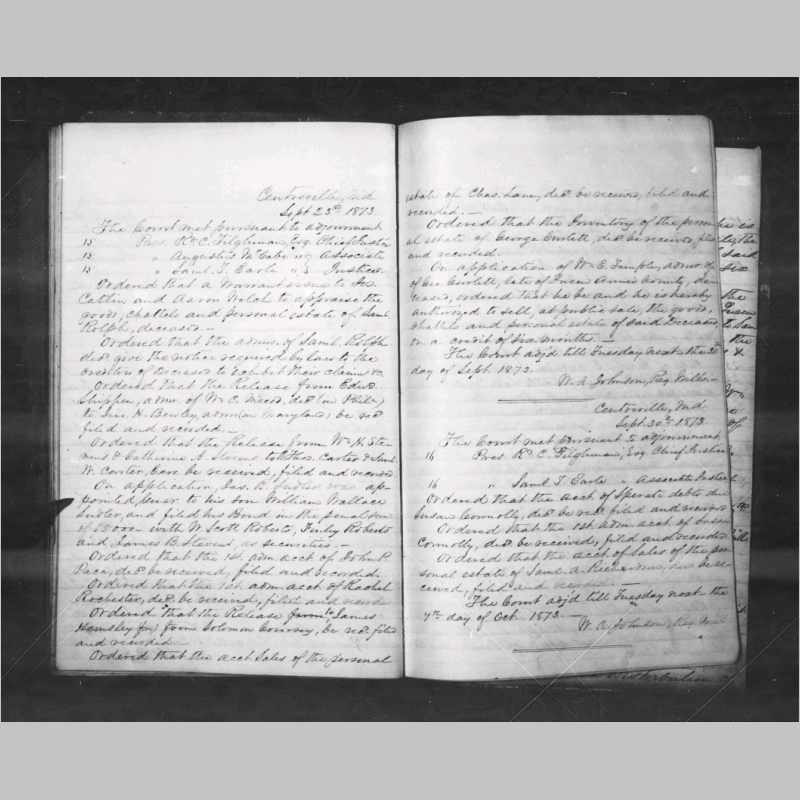 Centreville, Md
Sept. 23rd 1873.
The Court met pursuant to adjournment
13 Pres. R. C. Tilghman, Esq. Chief Justice
13 " Augustus M. " Associate
13 " Saml. T. Earle " Justices
Ordered that a warrant issue to Jos.
Catlin and Aaron Welch to appraise the
goods, chattels and personal estate of Saml.
Rolph, deceased.—
Ordered that the admr. of Saml. Rolph
decd. give the notice required by law to the
creditors of deceased to exhibit their claims &c.
Ordered that the Release from Edwd.
Shippen, admr. of Wm. C. decd. (in Phila.)
to Jas. H. Bewley admr. (in Maryland) be recd.
filed and recorded.—
Ordered that the Release from Wm. H. Ste-
vens & Catherine A. Stevens to Thos. Carter & Saml.
W. Carter, Exrs. be received, filed and recorded
On application, Jas. B. was ap-
pointed, to his son William Wallace
and filed his Bond in the penal sum
of with W. Scott Roberts, Finley Roberts
and James B. Stevens as securities.—
Ordered that the 1st adm. acct. of John P.
Paca, decd. be received, filed and recorded.
Ordered that the 1st adm. acct. of Rachel
Rochester, decd. be received, filed and recorded
Ordered that the Release from to James
Hemsley from Solomon be recd. filed
and recorded.—
Ordered that the acct. Sales of the personal
estate of Chas. Lane, decd. be received, filed and
recorded.—
Ordered that the Inventory of the person-
al estate of George Ewlett, decd. be received, filed
and recorded.
On application of Wm. E. Temple, admr.
of Geo. Ewlett, late of Queen Anne's County, de-
ceased, ordered that he be and he is hereby
authorized to sell, at public sale, the goods,
chattels and personal estate of said Deceased,
on a credit of six months.—
The Court adj'd till Tuesday next the 30th
day of Sept. 1873.
W. A. Johnson, Reg. Wills.
Centreville, Md.
Sept. 30th 1873
The Court met pursuant to adjournment
16 Pres. R. C. Tilghman, Esq. Chief Justice
16 " Saml. T. Earle " Associate Justice
Ordered that the acct. of Sperate debts due
Susan Connolly, decd. be recd. filed and recorded
Ordered that the 1st adm. acct. of Susan
Connolly, decd. be received, filed and recorded
Ordered that the acct. of Sales of the per-
sonal estate of Saml. A. be re-
ceived, filed and recorded.—
The Court adj'd till Tuesday next the
7th day of Oct. 1873.—
W. A. Johnson, Reg. Wills